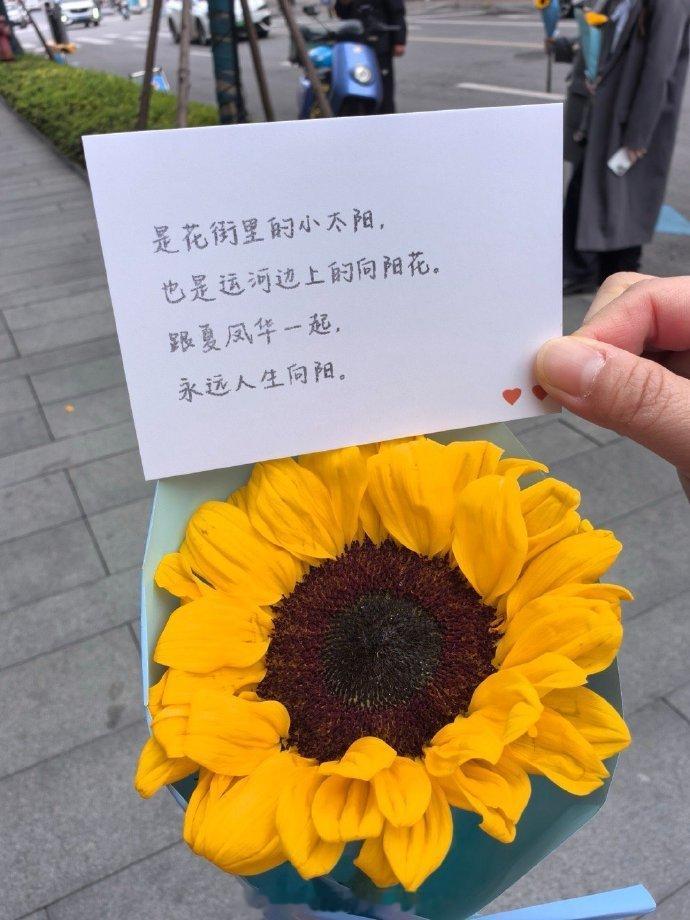 是花街里的小太阳，
也是运河边上的向阳花。
跟夏凤华一起，
永远人生向阳。